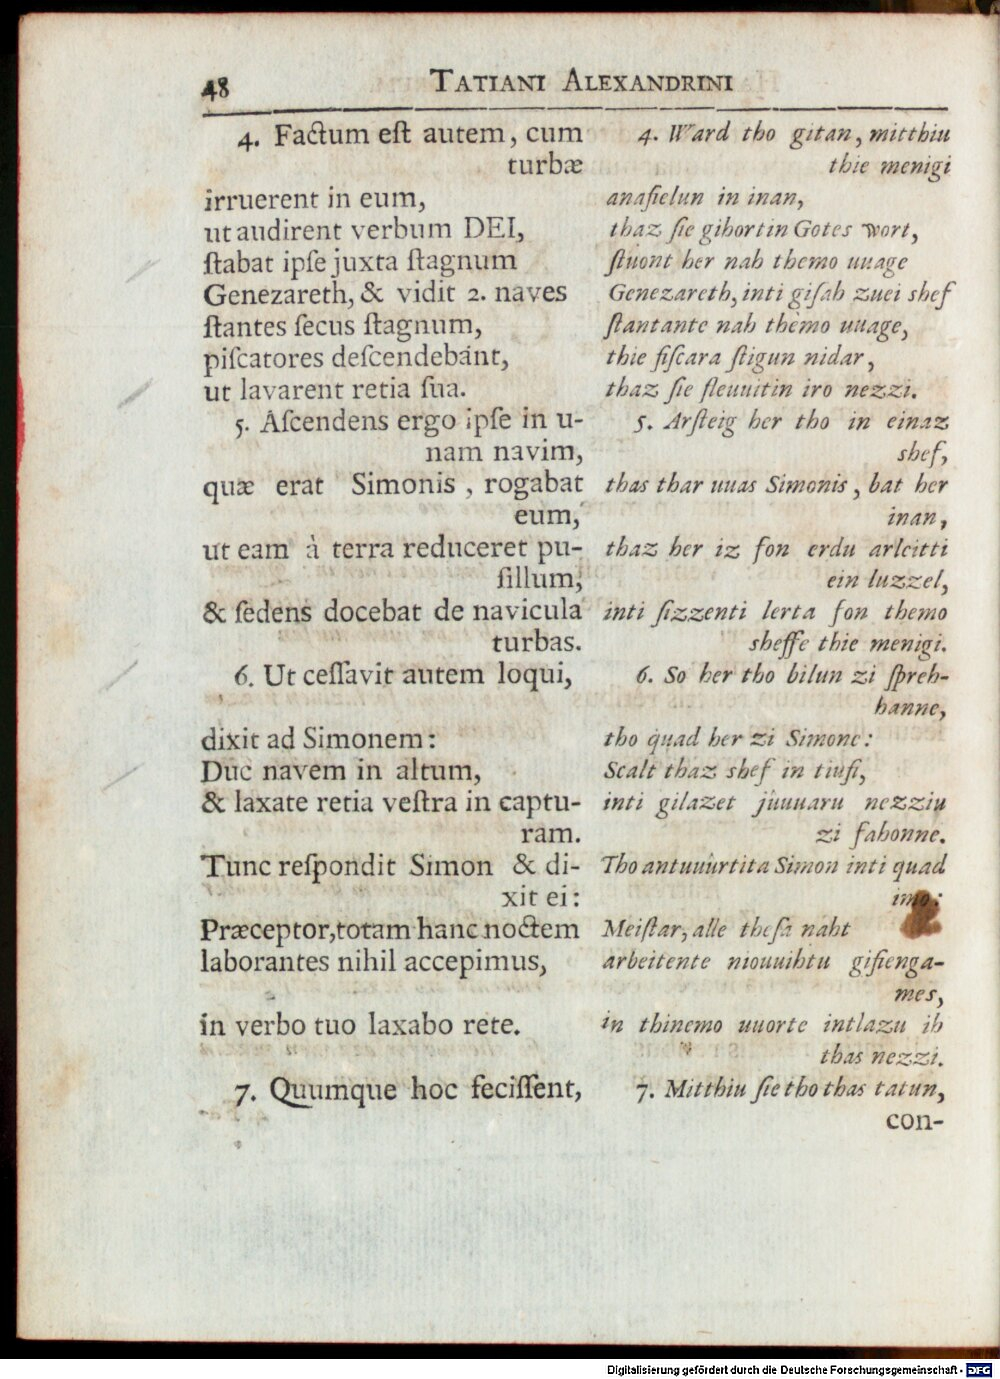 48 TATIANI ALEXANDRINI
4. Factum eſt autem, cum
turbæ
irruerent in eum,
ut audirent verbum DEI,
ſtabat ipſe juxta ſtagnum
Genezareth, & vidit 2. naves
ſtantes ſecus ſtagnum,
piſcatores deſcendebant,
ut lavarent retia ſua.
5. Aſcendens ergo ipſe in u-
nam navim,
quæ erat Simonis, rogabat
eum,
ut eam à terra reduceret pu-
ſillum,
& ſedens docebat de navicula
turbas.
6. Ut ceſſavit autem loqui,
dixit ad Simonem:
Duc navem in altum,
& laxate retia veſtra in captu-
ram.
Tunc reſpondit Simon & di-
xit ei:
Præceptor, totam hanc noctem
laborantes nihil accepimus,
in verbo tuo laxabo rete.
7. Quumque hoc feciſſent,
4. Ward tho gitan, mitthiu
thie menigi
anafielun in inan,
thaz ſie gihortin Gotes wort,
ſtuont her nah themo uuage
Genezareth, inti giſah zuei shef
ſtantante nah themo uuage,
thie fiſcara ſtigun nidar,
thaz ſie fleuuitin iro nezzi.
5. Arſteig her tho in einaz
shef,
thas thar uuas Simonis, bat her
inan,
thaz her iz fon erdu arleitti
ein luzzel,
inti ſizzenti lerta fon themo
sheffe thie menigi.
6. So her tho bilun zi ſpreh-
hanne,
tho quad her zi Simone:
Scalt thaz shef in tiufi,
inti gilazet juuuaru nezziu
zi fahonne.
Tho antuuurtita Simon inti quad
imo:
Meiſtar, alle theſa naht
arbeitente niouuihtu gifienga-
mes,
in thinemo uuorte intlazu ih
thas nezzi.
7. Mitthiu ſie tho thas tatun,
con-
Digitalisierung gefördert durch die Deutsche Forschungsgemeinschaft - DFG